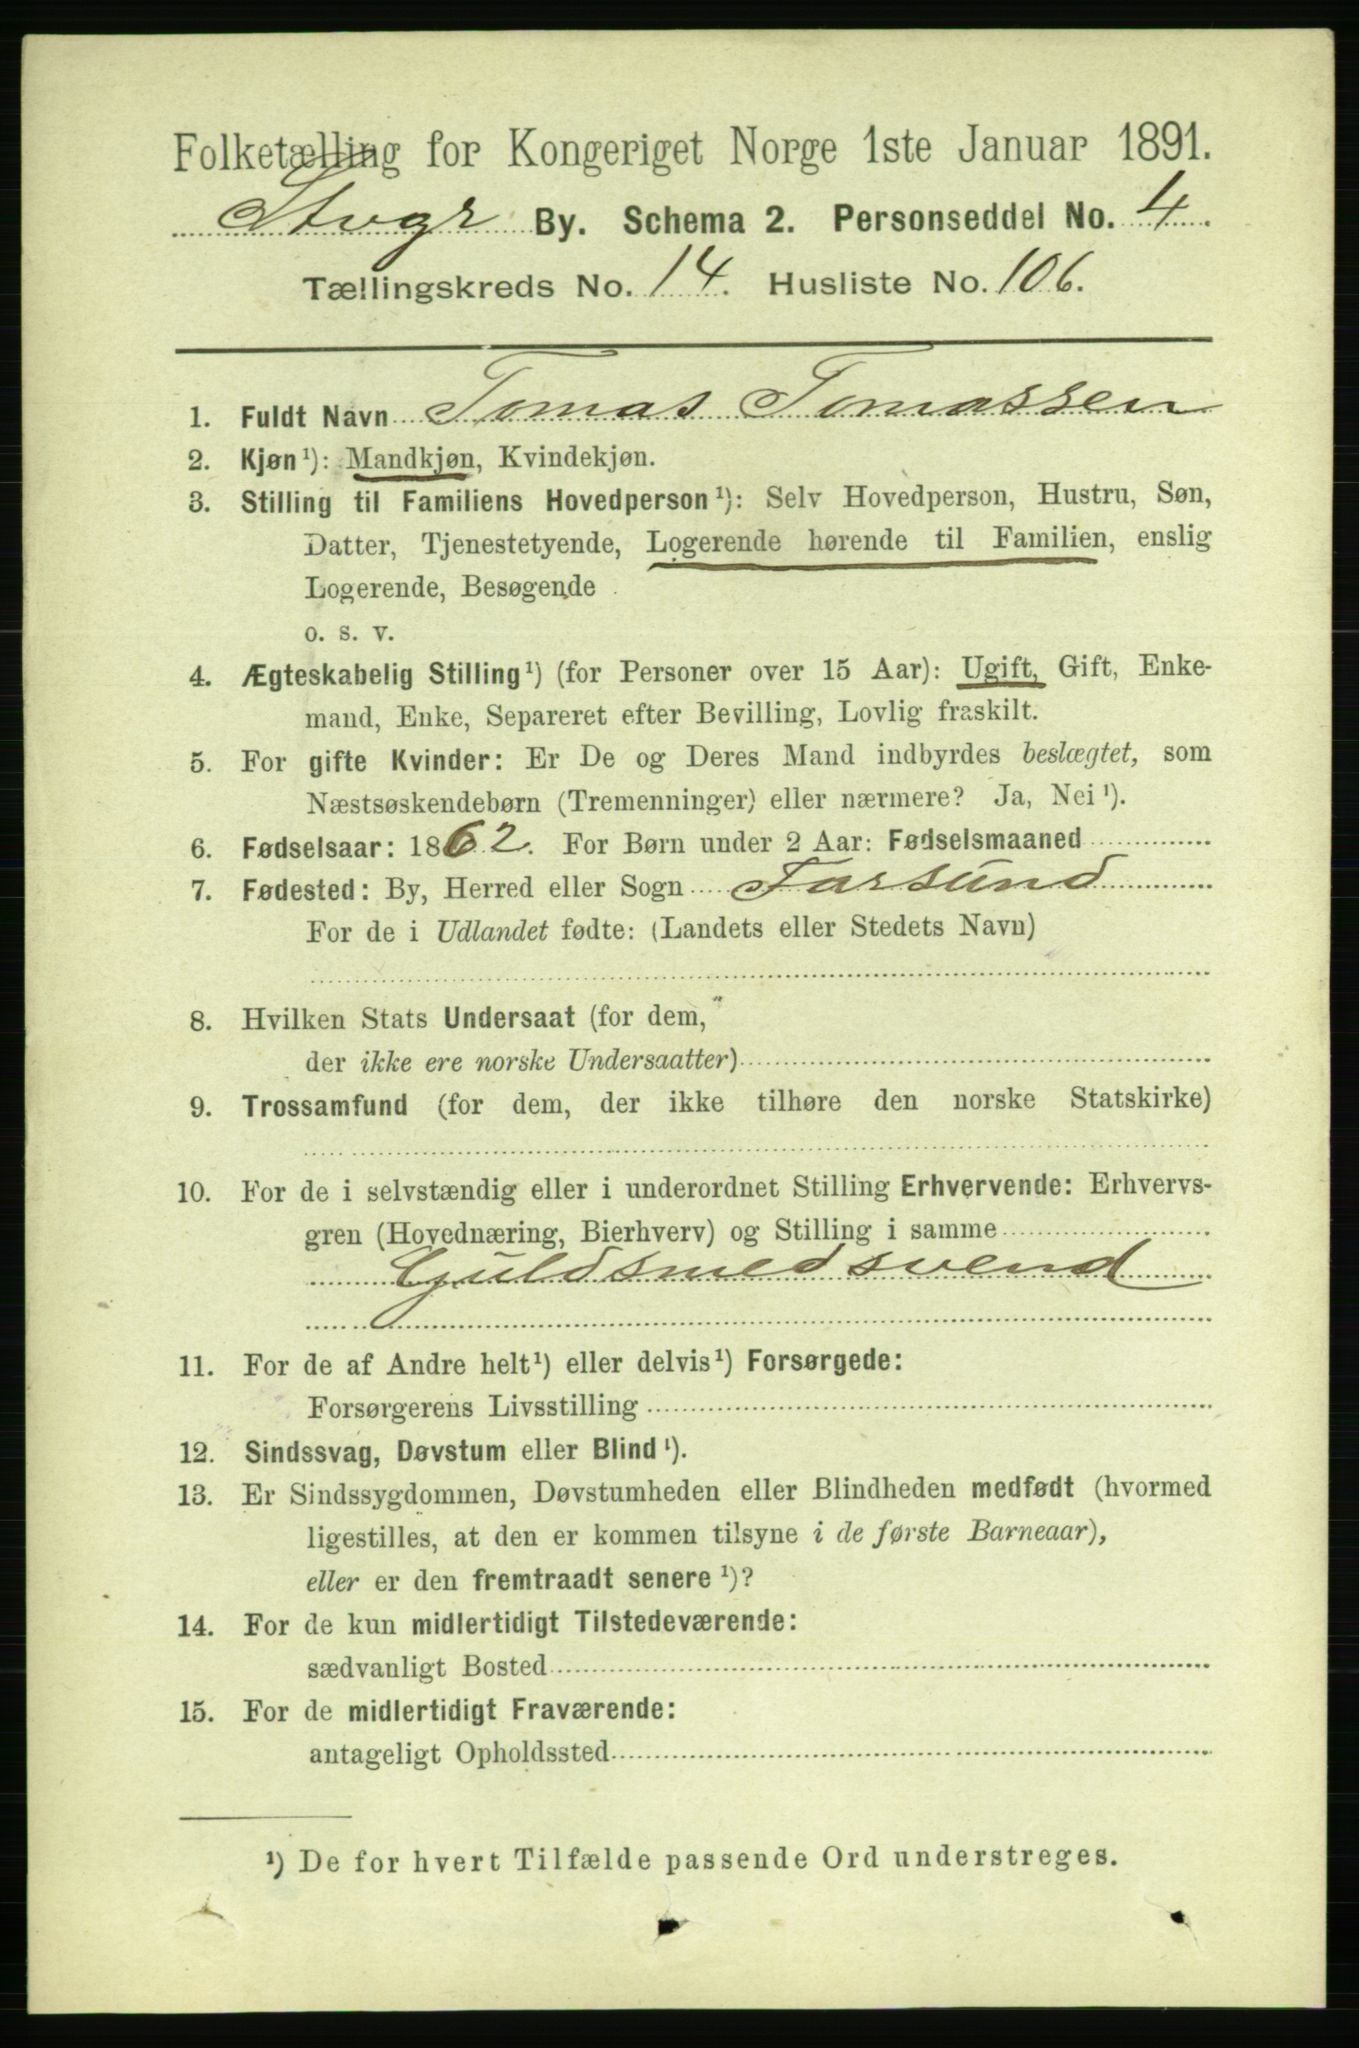 Folketælling for Kongeriget Norge 1ste Januar 1891.
Stvgr By. Schema 2. Personseddel No. 4.
Tællingskreds No. 14. Husliste No. 106.
1. Fuldt Navn Tomas Tomassen
2. Kjøn¹): Mandkjøn, Kvindekjøn.
3. Stilling til Familiens Hovedperson¹): Selv Hovedperson, Hustru, Søn,
Datter, Tjenestetyende, Logerende hørende til Familien, enslig
Logerende, Besøgende
o. s. v.
4. Ægteskabelig Stilling¹) (for Personer over 15 Aar): Ugift, Gift, Enke-
mand, Enke, Separeret efter Bevilling, Lovlig fraskilt.
5. For gifte Kvinder: Er De og Deres Mand indbyrdes beslægtet, som
Næstsøskendebørn (Tremenninger) eller nærmere? Ja, Nei¹).
6. Fødselsaar: 1862. For Børn under 2 Aar: Fødselsmaaned
7. Fødested: By, Herred eller Sogn Farsund
For de i Udlandet fødte: (Landets eller Stedets Navn)
8. Hvilken Stats Undersaat (for dem,
der ikke ere norske Undersaatter)
9. Trossamfund (for dem, der ikke tilhøre den norske Statskirke)
10. For de i selvstændig eller i underordnet Stilling Erhvervende: Erhvervs-
gren (Hovednæring, Bierhverv) og Stilling i samme
Guldsmedsvend
11. For de af Andre helt¹) eller delvis¹) Forsørgede:
Forsørgerens Livsstilling
12. Sindssvag, Døvstum eller Blind¹).
13. Er Sindssygdommen, Døvstumheden eller Blindheden medfødt (hvormed
ligestilles, at den er kommen tilsyne i de første Barneaar),
eller er den fremtraadt senere¹)?
14. For de kun midlertidigt Tilstedeværende:
sædvanligt Bosted
15. For de midlertidigt Fraværende:
antageligt Opholdssted
¹) De for hvert Tilfælde passende Ord understreges.